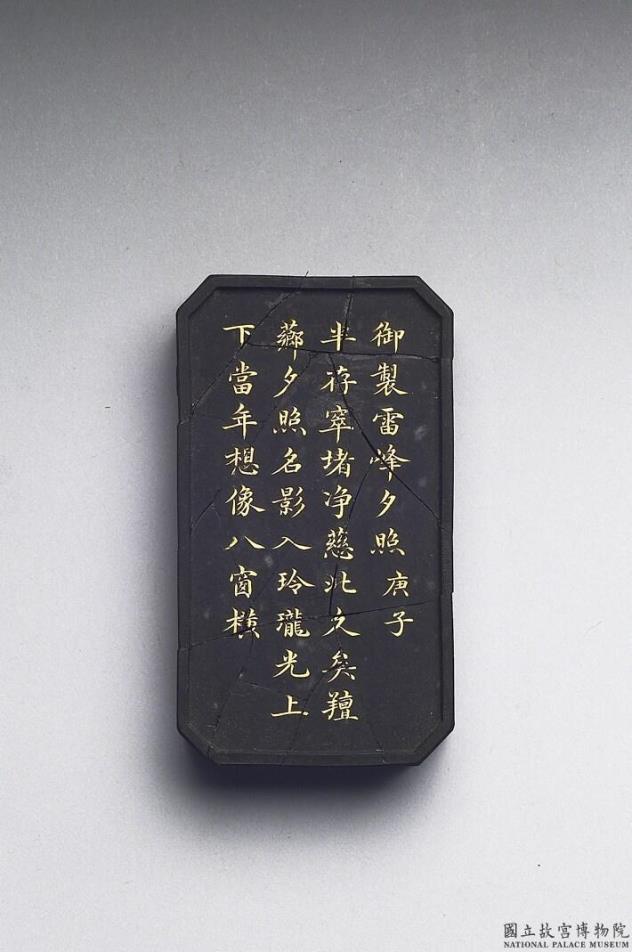 御製雷峰夕照庚子
半存窣堵净慈北久矣羶
薌夕照名影入玲瓏光上
下當年想像八窗橫
國立故宮博物院
NATIONAL PALACE MUSEUM